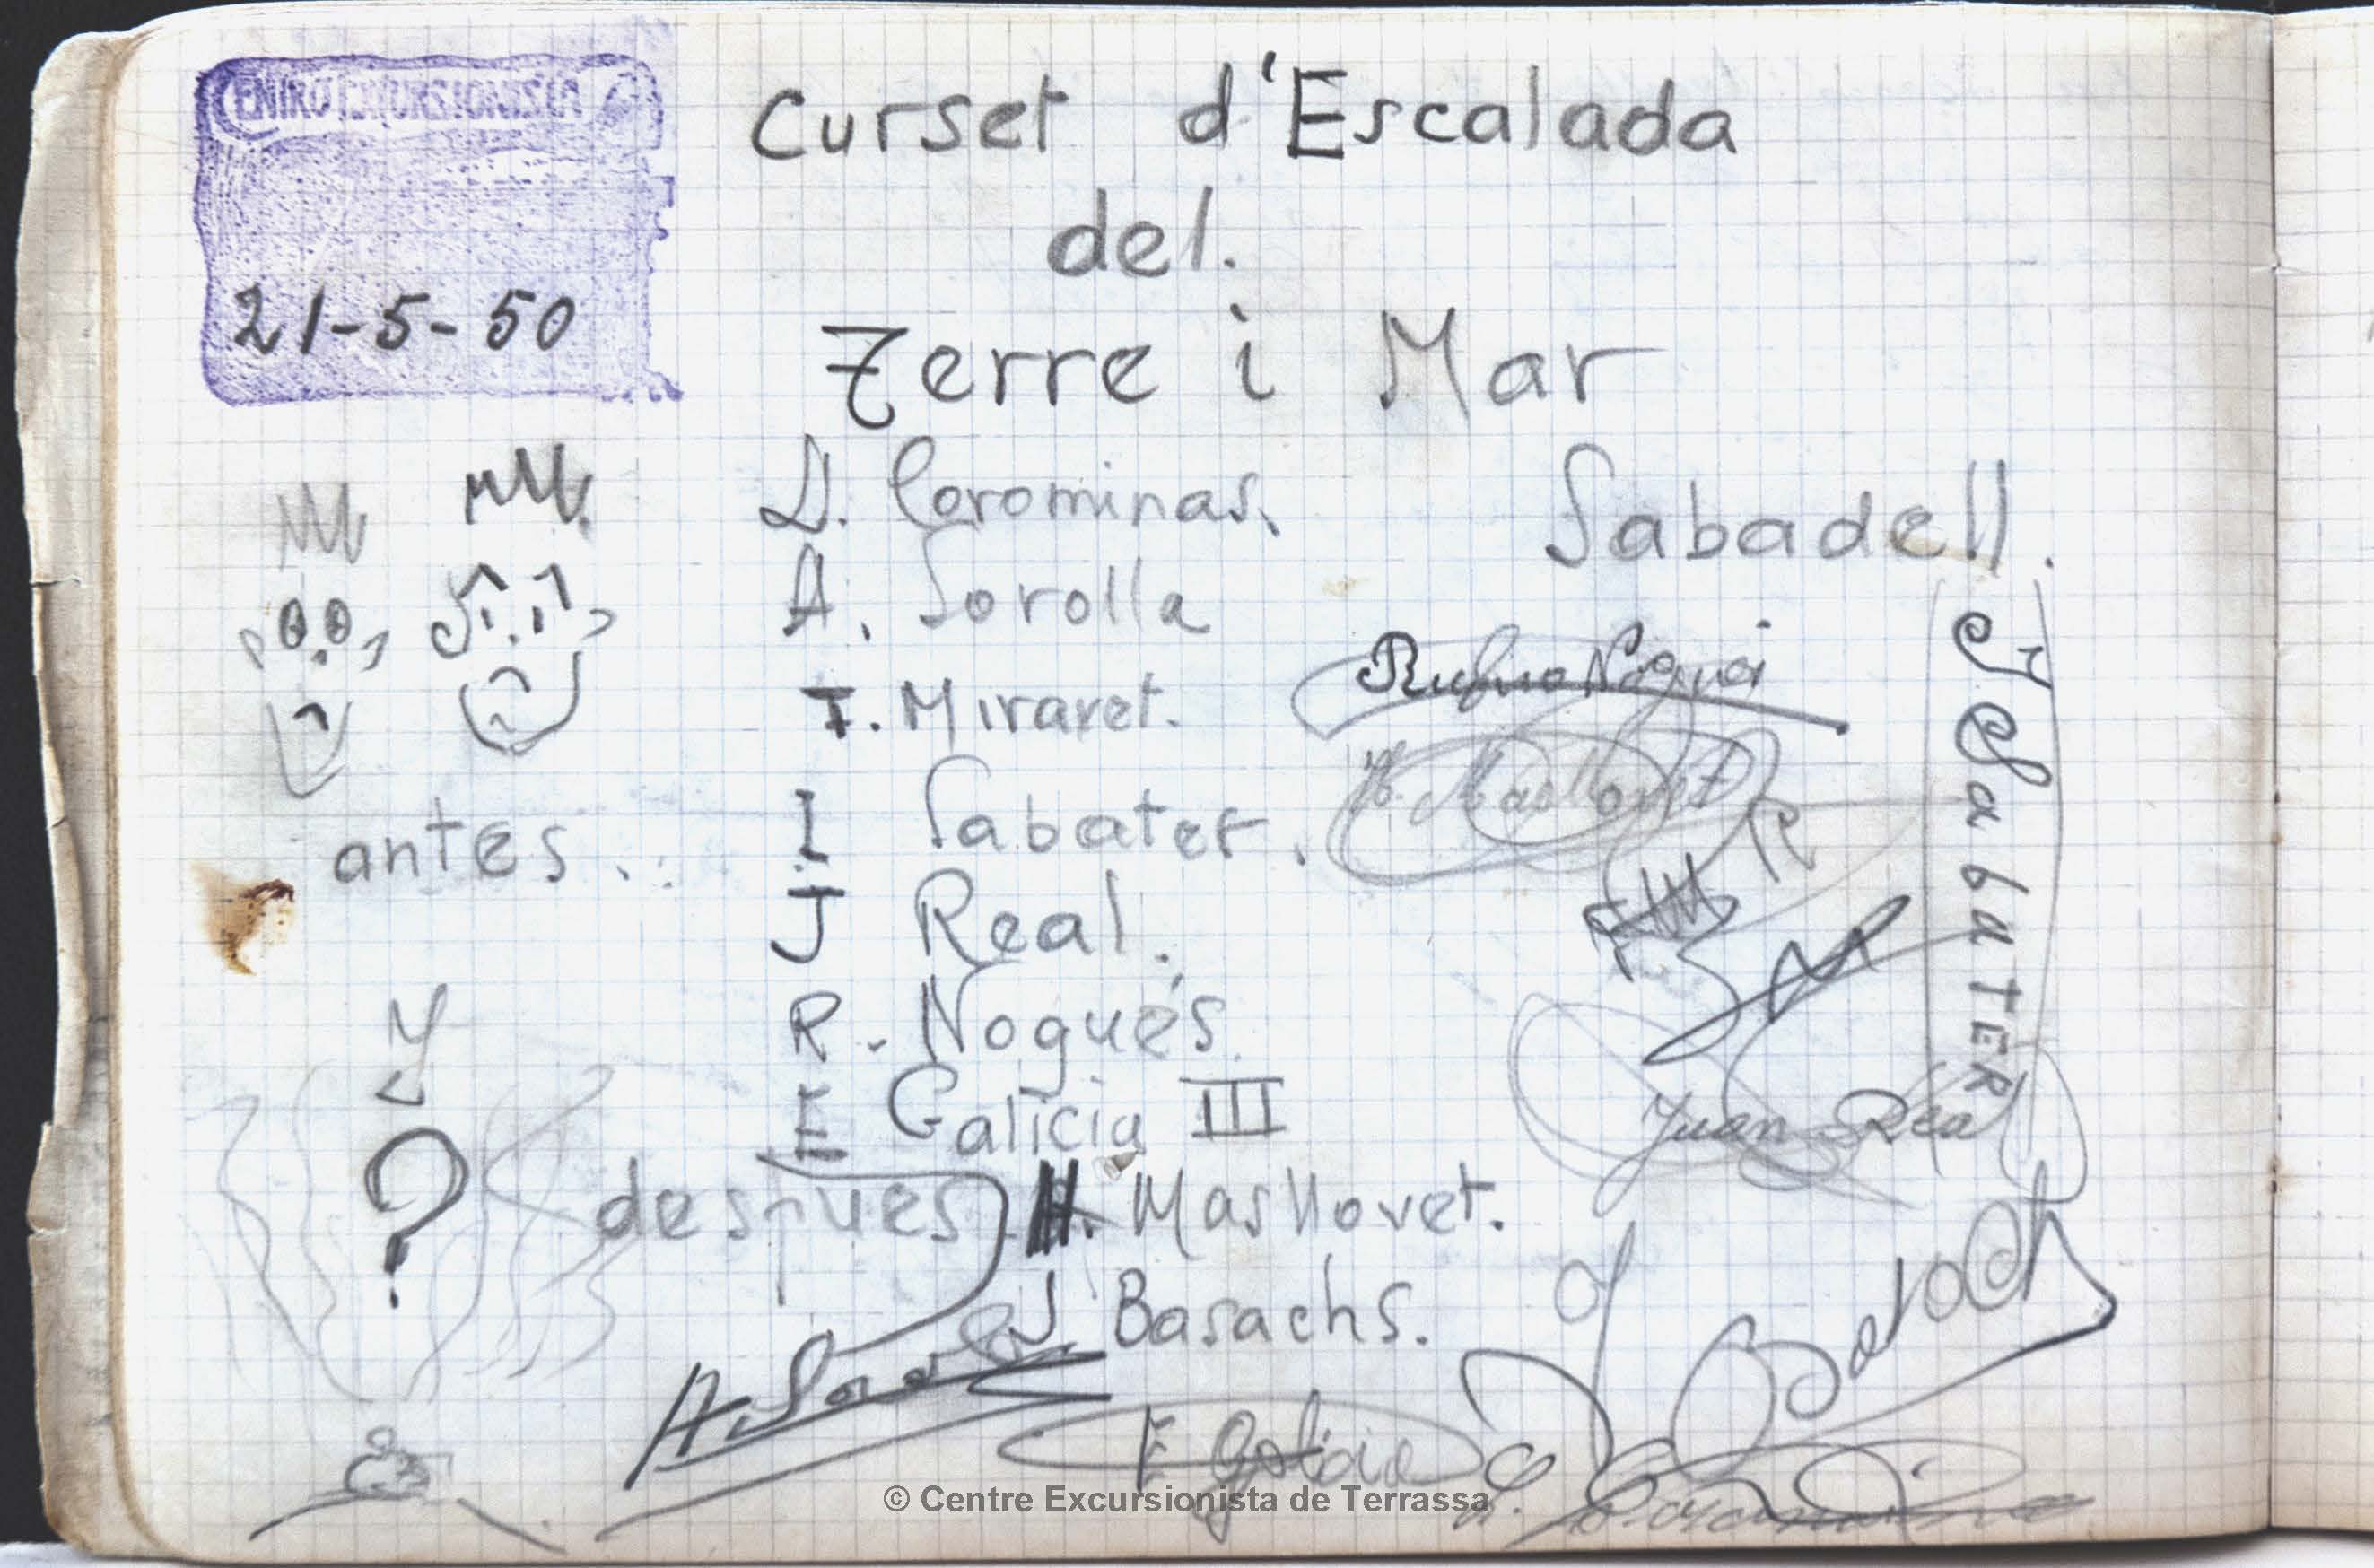 CENTRO EXCURSIONISTA
21-5-50
Curset d'Escalada
del.
Terre i Mar
Sabadell.
D. Corominas.
A. Sorolla
F. Miravet.
I Sabater.
J Real.
R. Nogués
E Galicia III
H. Masllovet.
J. Basachs.
antes...
y
?
despues
Rufino Nogués
H. Masllovet
I Sabater
Juan Real
J Basachs
A. Sorolla
E Galicia
© Centre Excursionista de Terrassa